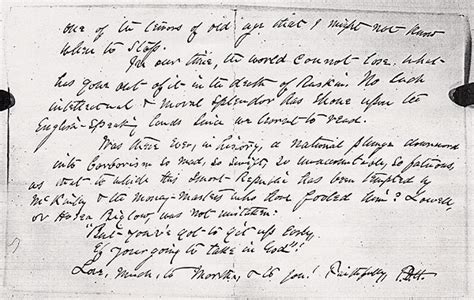 one of the terrors of old age that I might not know
where to stop.
For our time, the world cannot lose, what
has gone out of it in the death of Ruskin. No such
intellectual & moral splendor has shone upon the
English-speaking lands since we learned to read.
Was there ever, in history, a national plunge downward
into barbarism so mad, so swift, so unaccountable, so fatuous,
as that to which this smart Republic has been tempted by
McKinley & the money-market who have fooled him? Lowell,
or Hosea Biglow, was not mistaken:
"But you've got to get up early,
Ef your going to take in God"!
Love, much, to Martha, & to you! Faithfully,